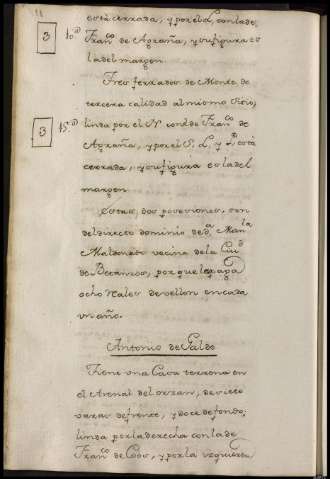 está cerrada, y por el L, con la de
3 10ª Fran.co de Agraña, y su figura es
la del margen
Tres ferrados de Monte de
tercera calidad al mismo sitio,
3 15ª linda por el N con la de Fran.co de
Agraña, y por el S, L, y P está
cerrada, y su figura es la del
margen
Estas dos posesiones, son
del directo dominio de d.ª Man.la
Maldonado vecina de la Ciu.d
de Betanzos, por que le paga
ocho Reales de vellon en cada
un año.
Antonio de Galdo
Tiene una Casa terrena en
el Arenal del orzan, de siete
varas de frente, y doce de fondo,
linda por la derecha con la de
Fran.co de Cobo, y por la izquierda